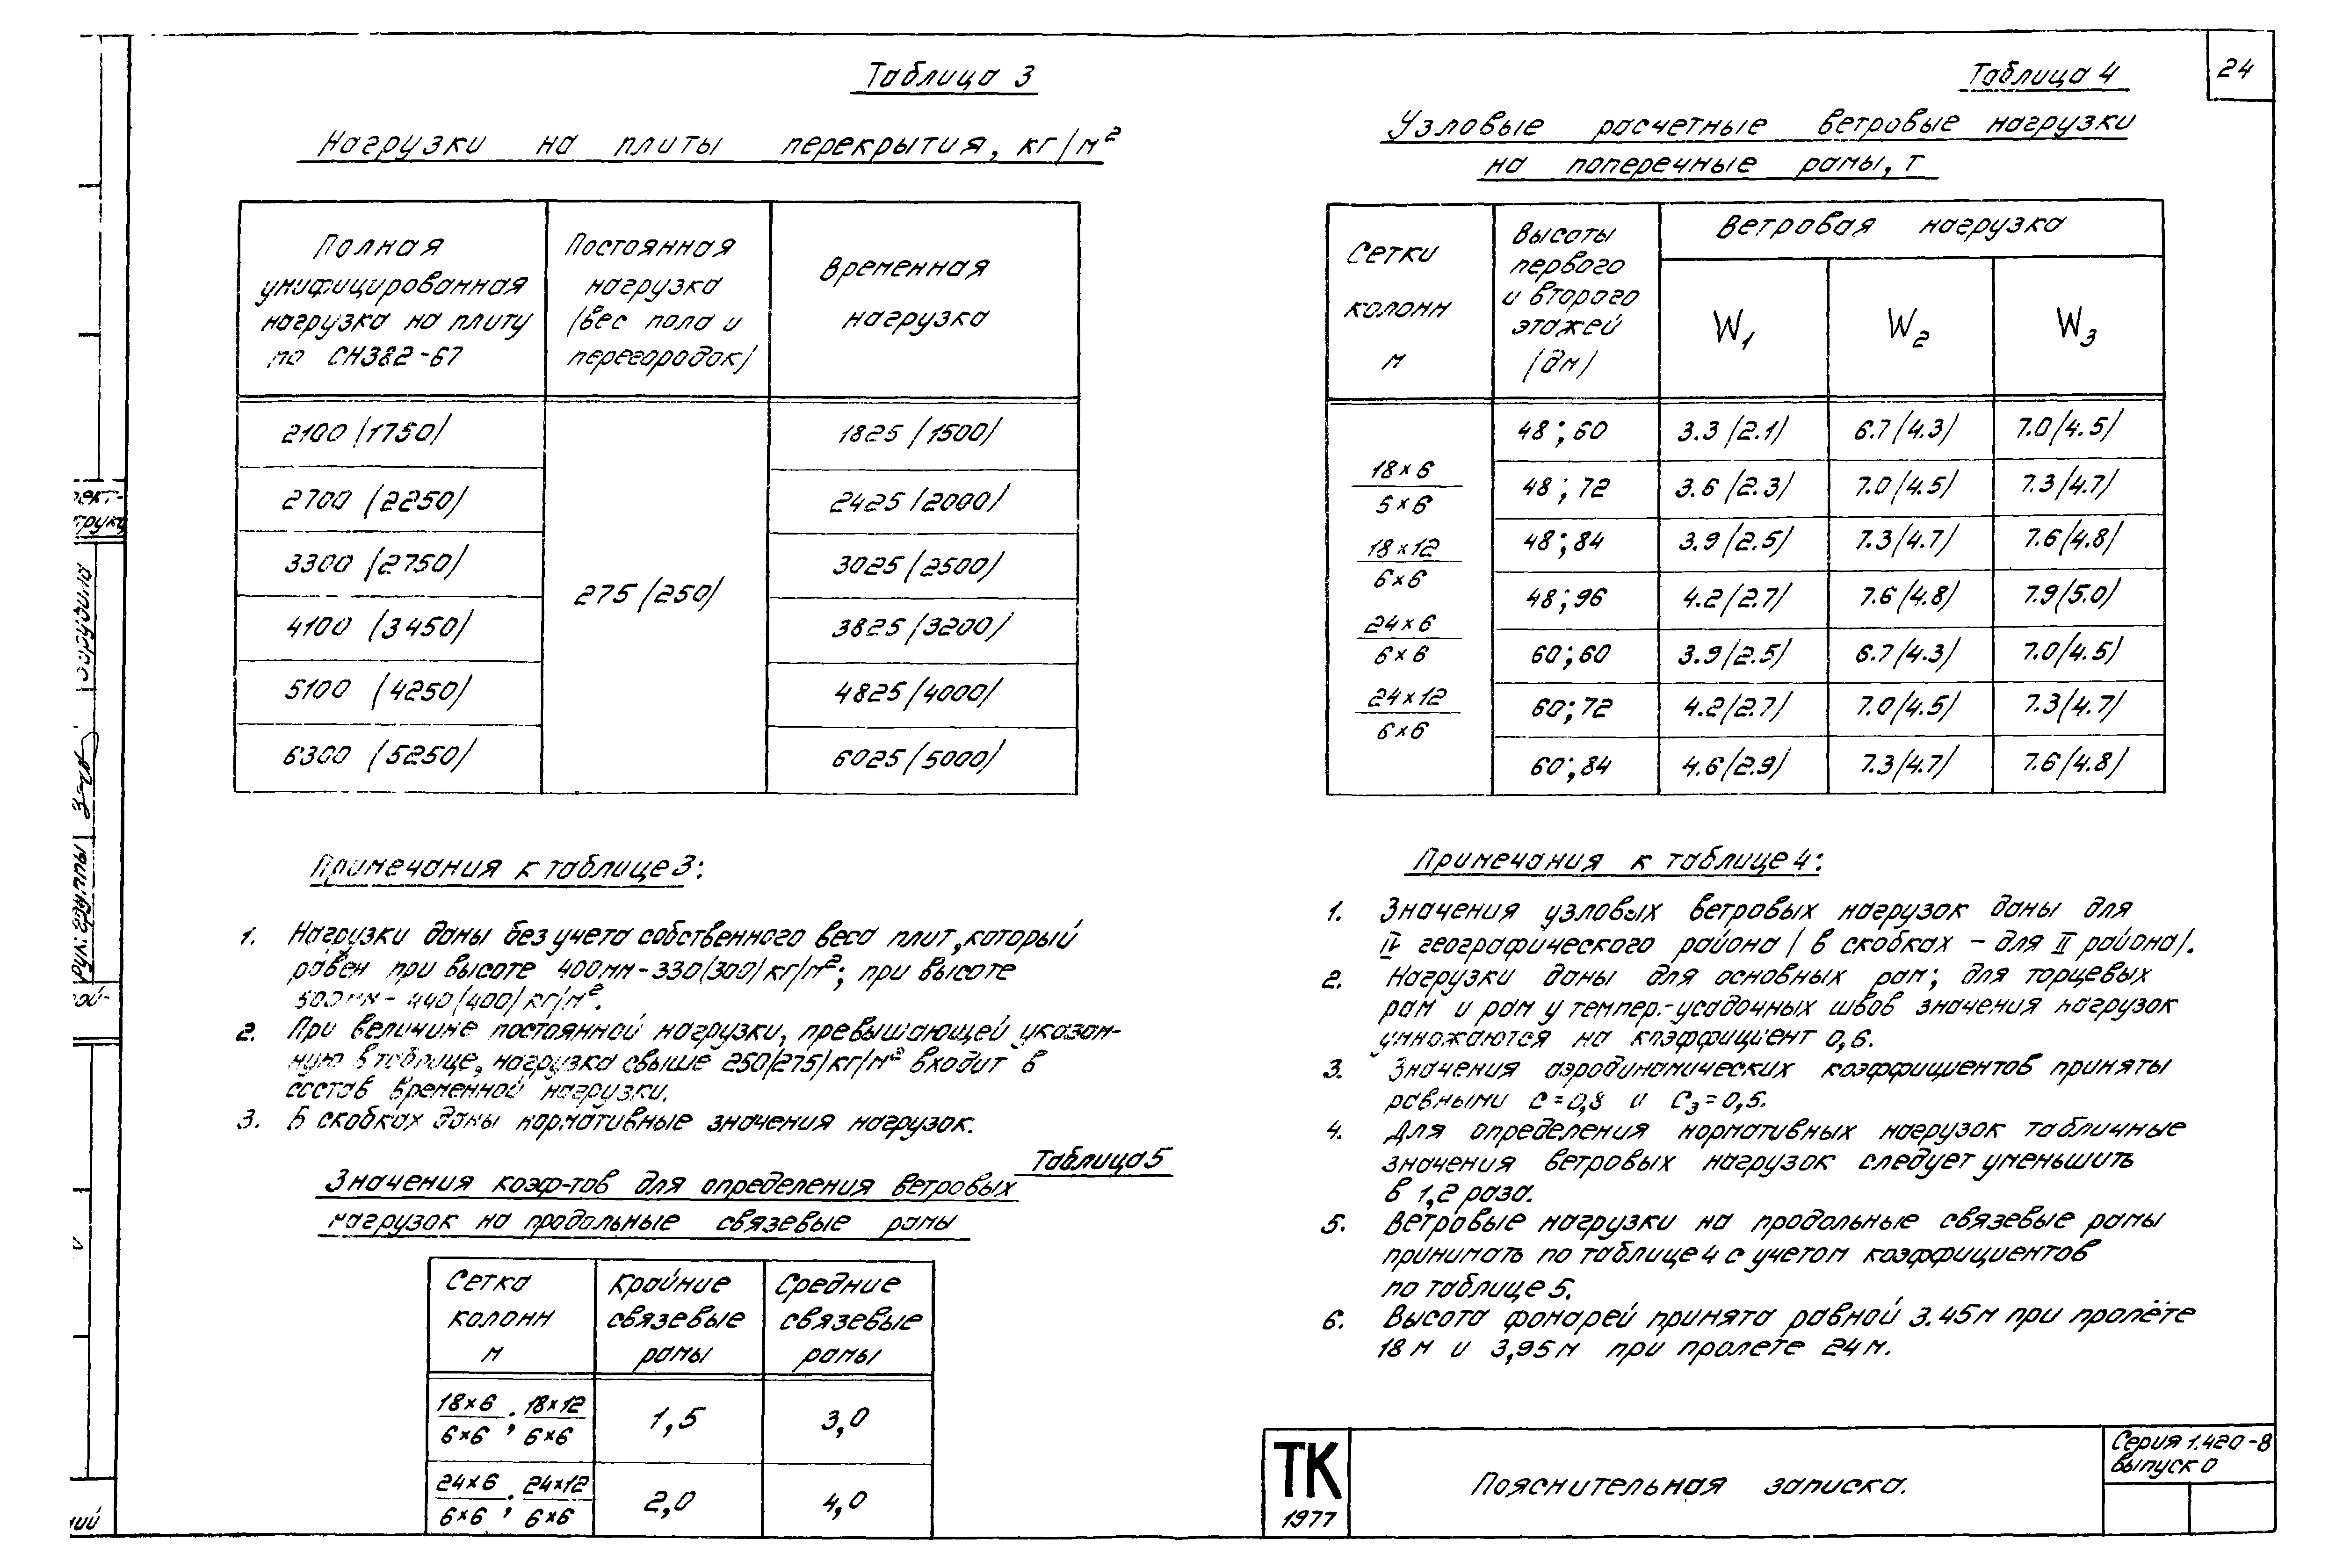 24
Таблица 3
Нагрузки на плиты перекрытия, кг/м²
Полная унифицированная нагрузка на плиту по СН382-67
Постоянная нагрузка (вес пола и перегородок)
Временная нагрузка
2100 (1750)
1825 (1500)
2700 (2250)
2425 (2000)
3300 (2750)
3025 (2500)
275 (250)
4100 (3450)
3825 (3200)
5100 (4250)
4825 (4000)
6300 (5250)
6025 (5000)
Примечания к таблице 3:
1. Нагрузки даны без учета собственного веса плит, который
равен при высоте 400мм-330(300)кг/м²; при высоте
500мм-440(400)кг/м².
2. При величине постоянной нагрузки, превышающей указан-
ную в таблице, нагрузка свыше 250(275)кг/м² входит в
состав временной нагрузки.
3. В скобках даны нормативные значения нагрузок.
Таблица 5
Значения коэф-тов для определения ветровых
нагрузок на продольные связевые рамы
Сетка колонн м
Крайние связевые рамы
Средние связевые рамы
18×6/6×6 ; 18×12/6×6
1,5
3,0
24×6/6×6 ; 24×12/6×6
2,0
4,0
Таблица 4
Узловые расчетные ветровые нагрузки
на поперечные рамы, т
Сетки колонн м
Высоты первого и второго этажей (дм)
Ветровая нагрузка
W1 W2 W3
18×6/5×6
18×12/6×6
24×6/6×6
24×12/6×6
48;60 3.3(2.1) 6.7(4.3) 7.0(4.5)
48;72 3.6(2.3) 7.0(4.5) 7.3(4.7)
48;84 3.9(2.5) 7.3(4.7) 7.6(4.8)
48;96 4.2(2.7) 7.6(4.8) 7.9(5.0)
60;60 3.9(2.5) 6.7(4.3) 7.0(4.5)
60;72 4.2(2.7) 7.0(4.5) 7.3(4.7)
60;84 4.6(2.9) 7.3(4.7) 7.6(4.8)
Примечания к таблице 4:
1. Значения узловых ветровых нагрузок даны для
IV географического района (в скобках - для II района).
2. Нагрузки даны для основных рам; для торцевых
рам и рам у темпер.-усадочных швов значения нагрузок
умножаются на коэффициент 0,6.
3. Значения аэродинамических коэффициентов приняты
равными С=0,8 и Сэ=0,5.
4. Для определения нормативных нагрузок табличные
значения ветровых нагрузок следует уменьшить
в 1,2 раза.
5. Ветровые нагрузки на продольные связевые рамы
принимать по таблице 4 с учетом коэффициентов
по таблице 5.
6. Высота фонарей принята равной 3.45м при пролёте
18м и 3,95м при пролете 24м.
ТК
1977
Пояснительная записка.
Серия 1.420-8
выпуск 0
рук. группы